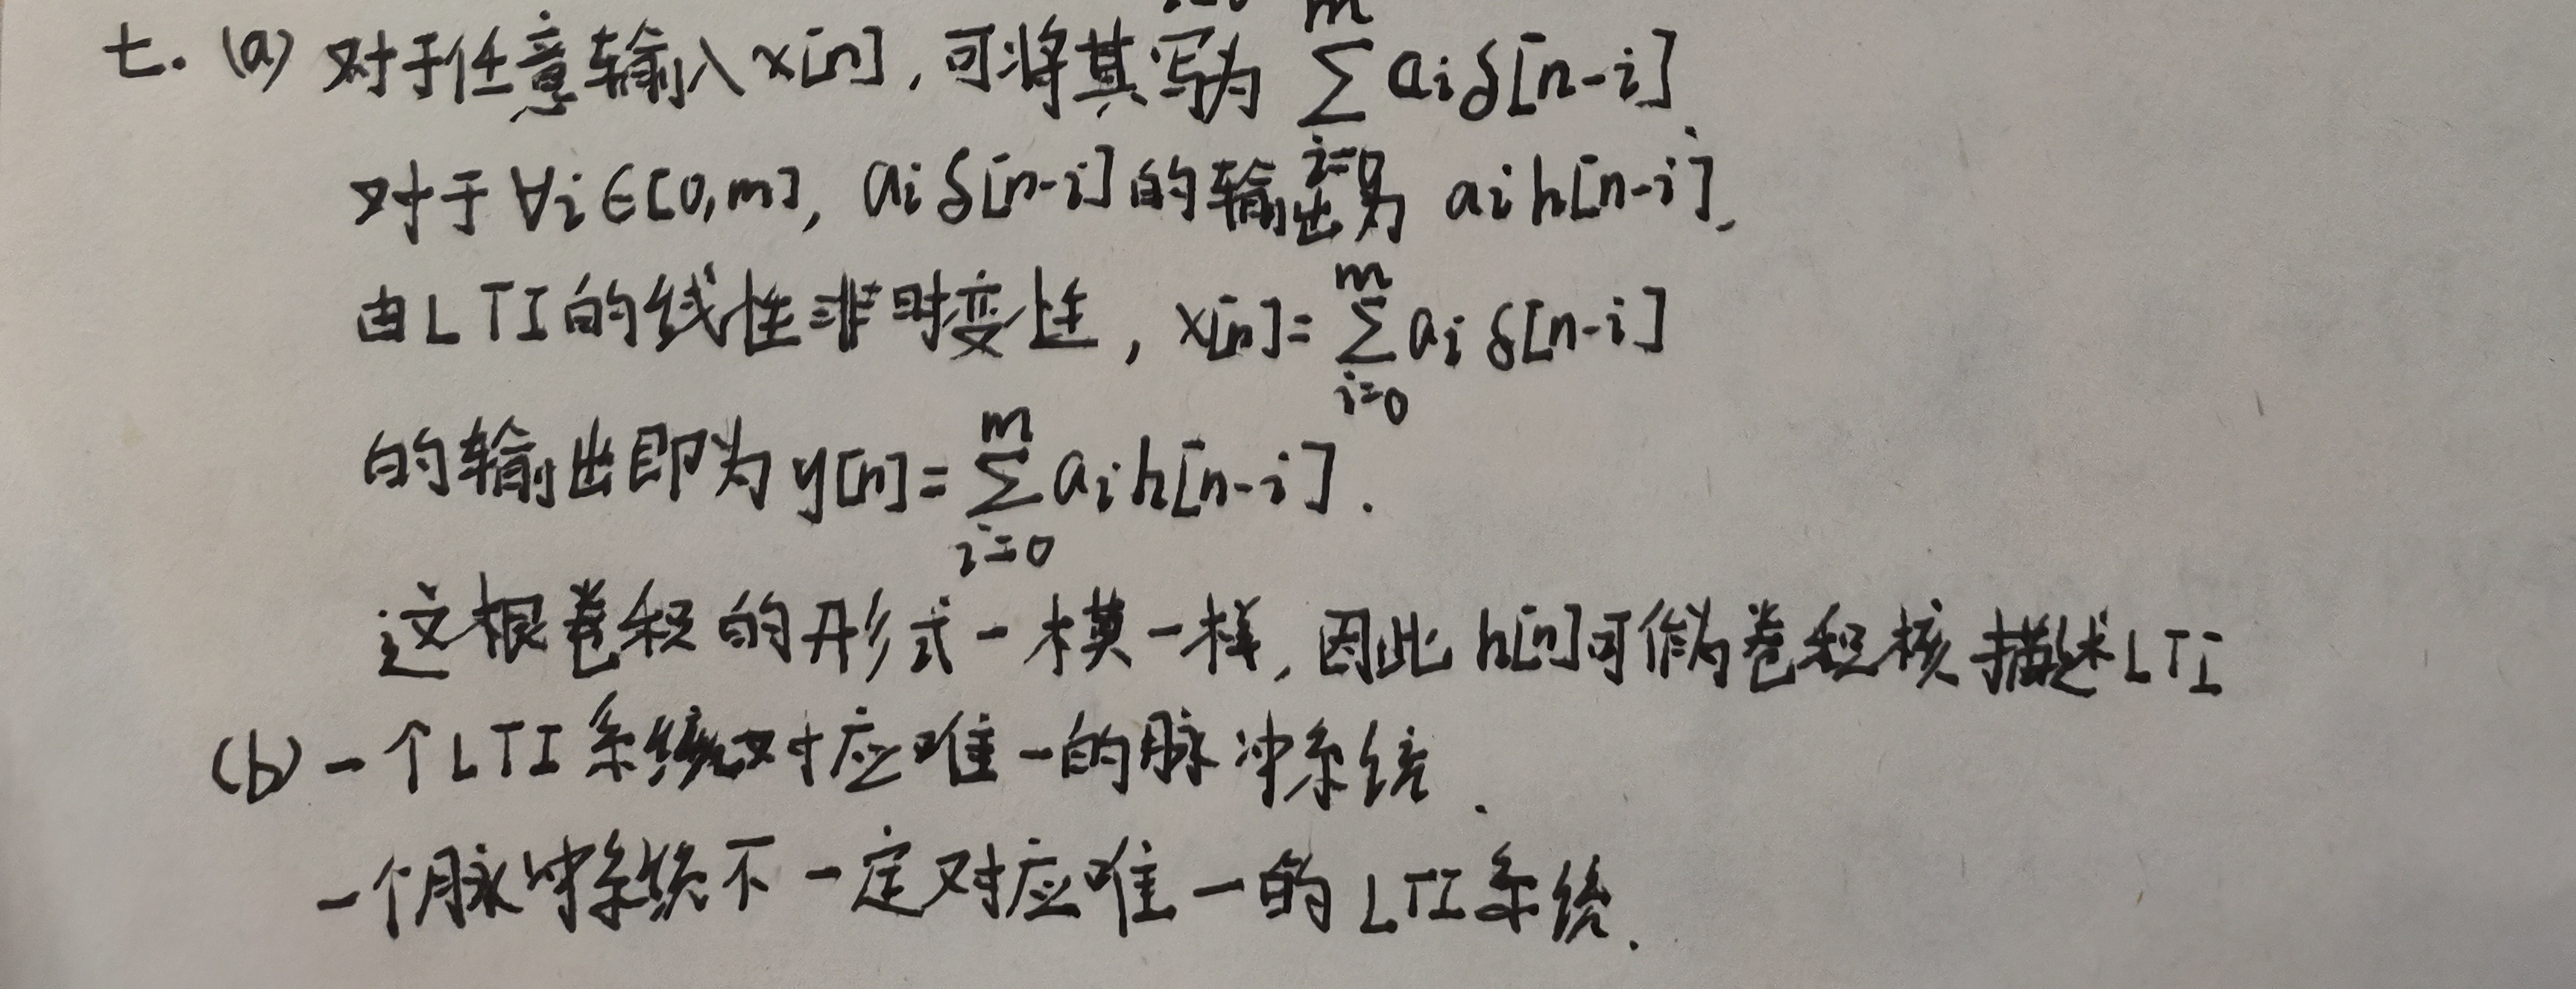 七. (a) 对于任意输入x[n], 可将其写为 ∑_{i=0}^{m} aᵢδ[n-i].
对于∀i∈[0,m], aᵢδ[n-i]的输出为 aᵢh[n-i].
由LTI的线性非时变性, x[n]=∑_{i=0}^{m} aᵢδ[n-i]
的输出即为y[n]=∑_{i=0}^{m} aᵢh[n-i].
这根卷积的形式一模一样, 因此h[n]可作为卷积核描述LTI
(b) 一个LTI系统对应唯一的脉冲系统.
一个脉冲系统不一定对应唯一的LTI系统.